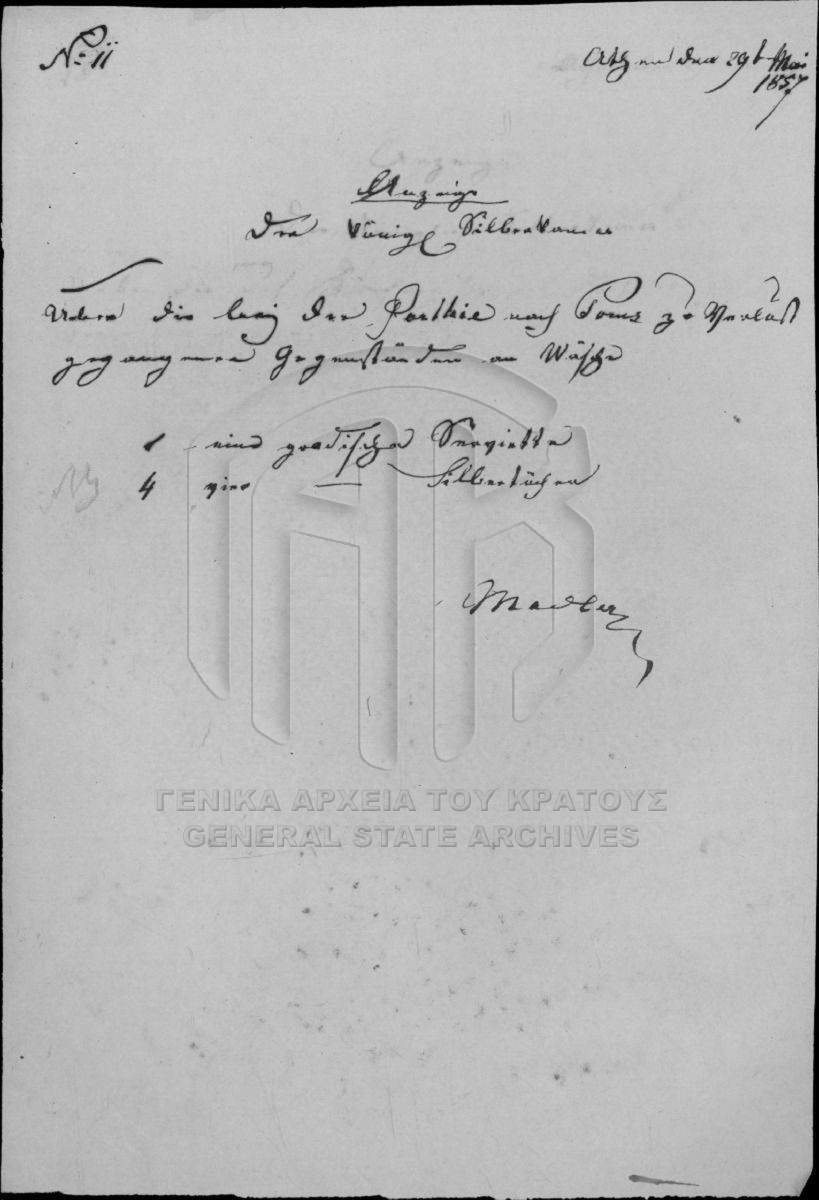 No 11
Athen den 29t Mai
1857
Anzeige
Der Königl Silberkamer
Ueber die bei der Parthie nach zu Verlust
gegangenen Gegenständen an Wäsche
1 eine gradischer Serviette
4 vier — Silbertücher
Madler
ΓΕΝΙΚΑ ΑΡΧΕΙΑ ΤΟΥ ΚΡΑΤΟΥΣ
GENERAL STATE ARCHIVES